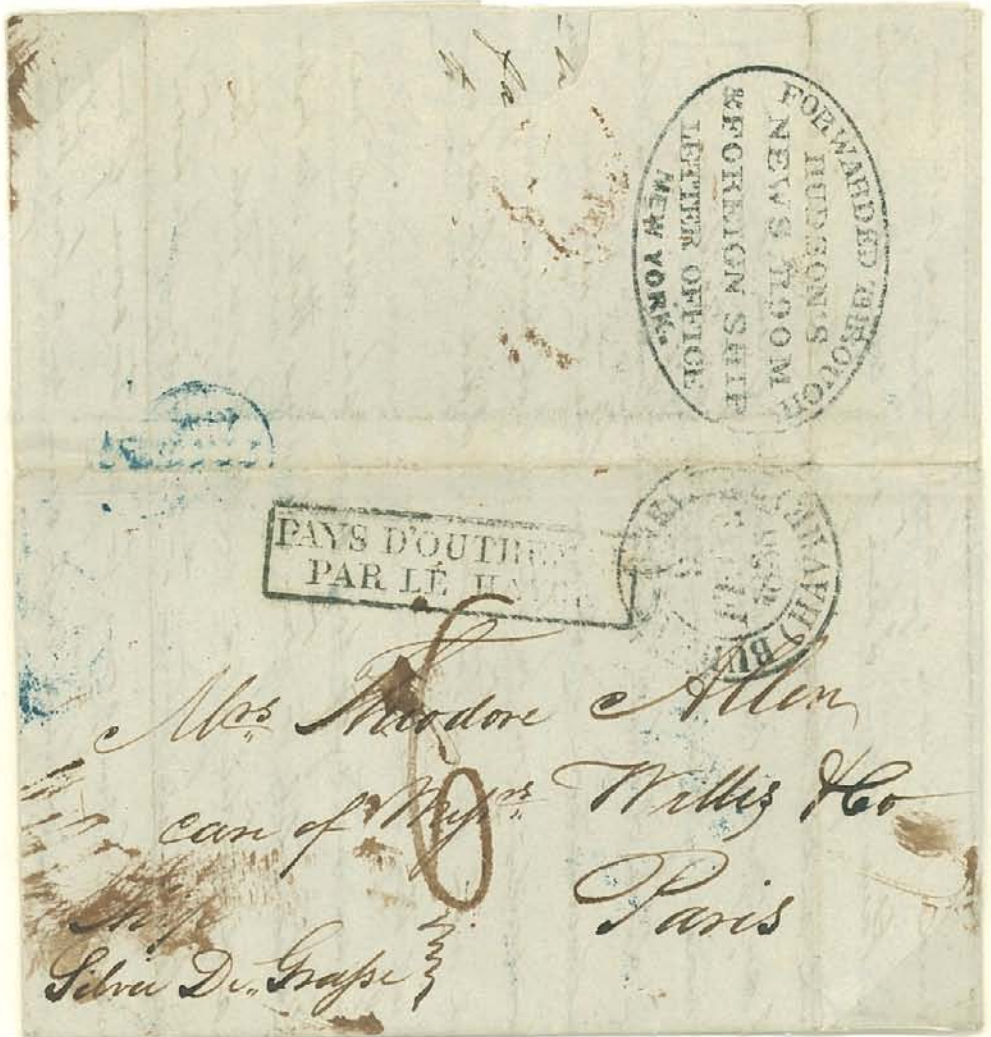 FORWARDED THROUGH
HUDSON'S
NEWS ROOM
& FOREIGN SHIP
LETTER OFFICE
NEW YORK.
PAYS D'OUTREM
PAR LE HAVRE
Mrs Theodore Allen
care of Messrs Willis & Co
Paris
Ship
Silvie De Grasse